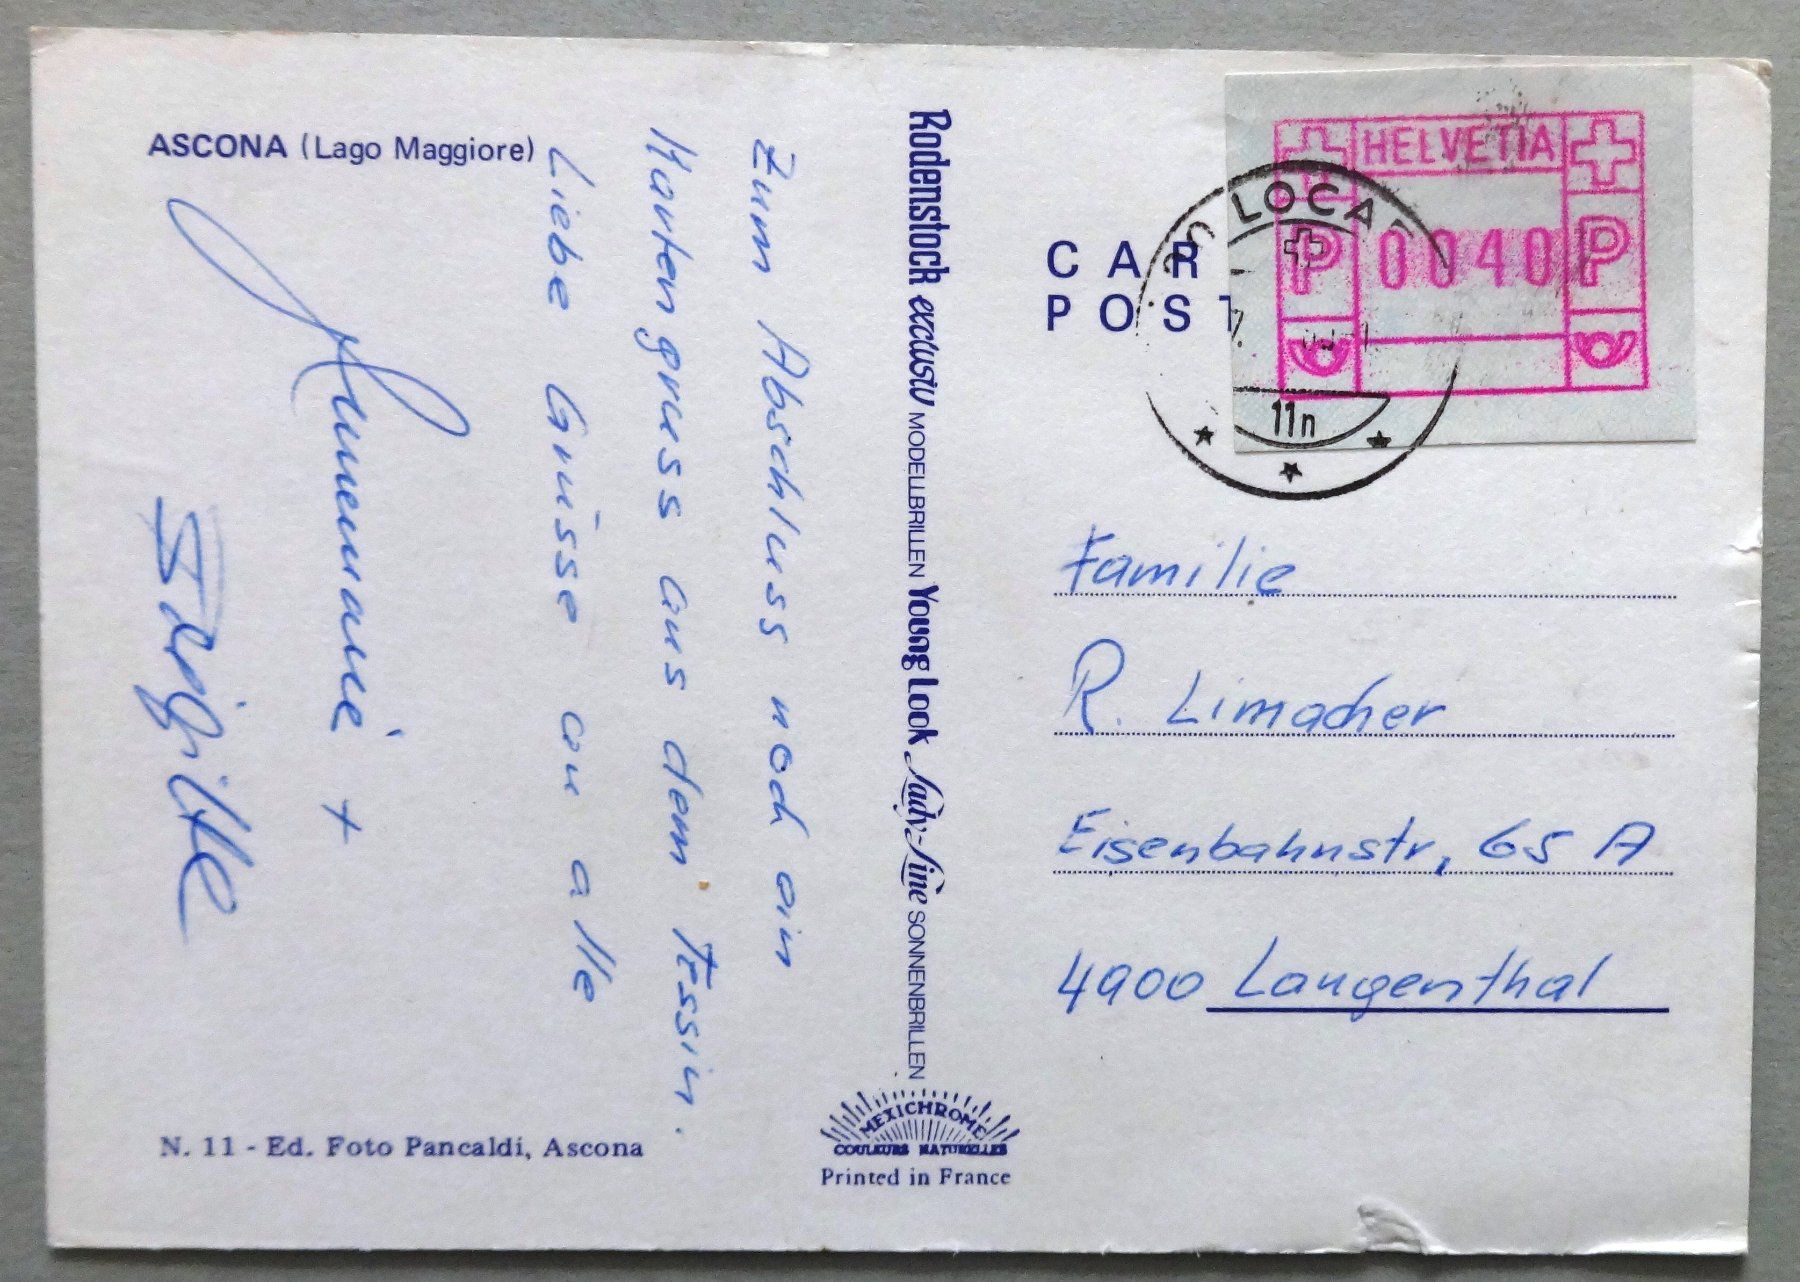 ASCONA (Lago Maggiore)
Zum Abschluss noch ein
Kartengruss aus dem Tessin.
Liebe Grüsse an alle
Annemarie +
Brigitte
N. 11 - Ed. Foto Pancaldi, Ascona
Rodenstock exclusiv MODELLBRILLEN Young Look Lady-Line SONNENBRILLEN
MEXICHROME
COULEURS NATURELLES
Printed in France
CAR
POST
HELVETIA
P 0040 P
LOCAR
11n
Familie
R. Limacher
Eisenbahnstr, 65 A
4900 Langenthal